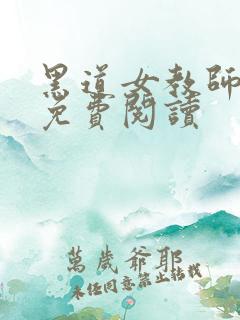 黑道女教師
免費閱讀
萬歲爺耶
未經同意禁止轉載